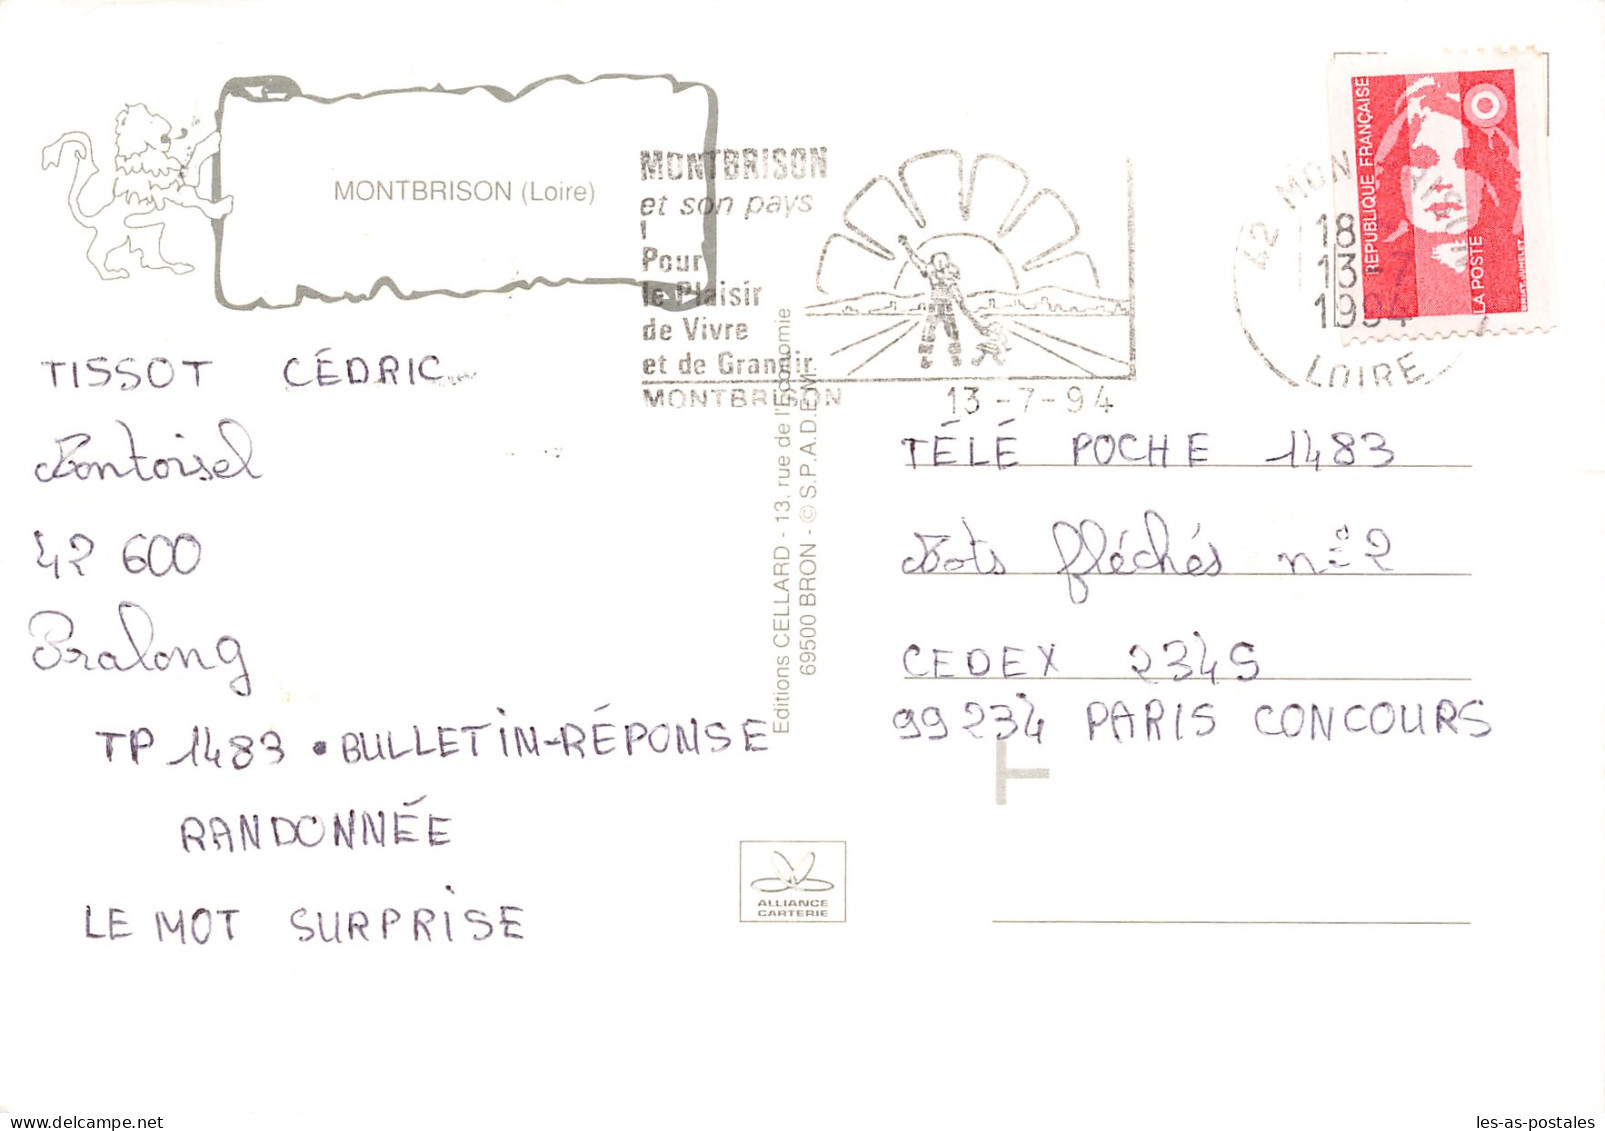 MONTBRISON (Loire)
MONTBRISON
et son pays
Pour
le Plaisir
de Vivre
et de Grandir
MONTBRISON
13-7-94
42 MONTBRISON
18 H
13-7
1994
LOIRE
RÉPUBLIQUE FRANÇAISE
LA POSTE
TISSOT CÉDRIC
42 600
Pralong
TP 1483 • BULLETIN-RÉPONSE
RANDONNÉE
LE MOT SURPRISE
Editions CELLARD - 13, rue de l'Economie
69500 BRON - © S.P.A.D.E.M.
TÉLÉ POCHE 1483
Mots fléchés n° 2
CEDEX 2345
99234 PARIS CONCOURS
T
ALLIANCE
CARTERIE
les-as-postales
delcampe.net